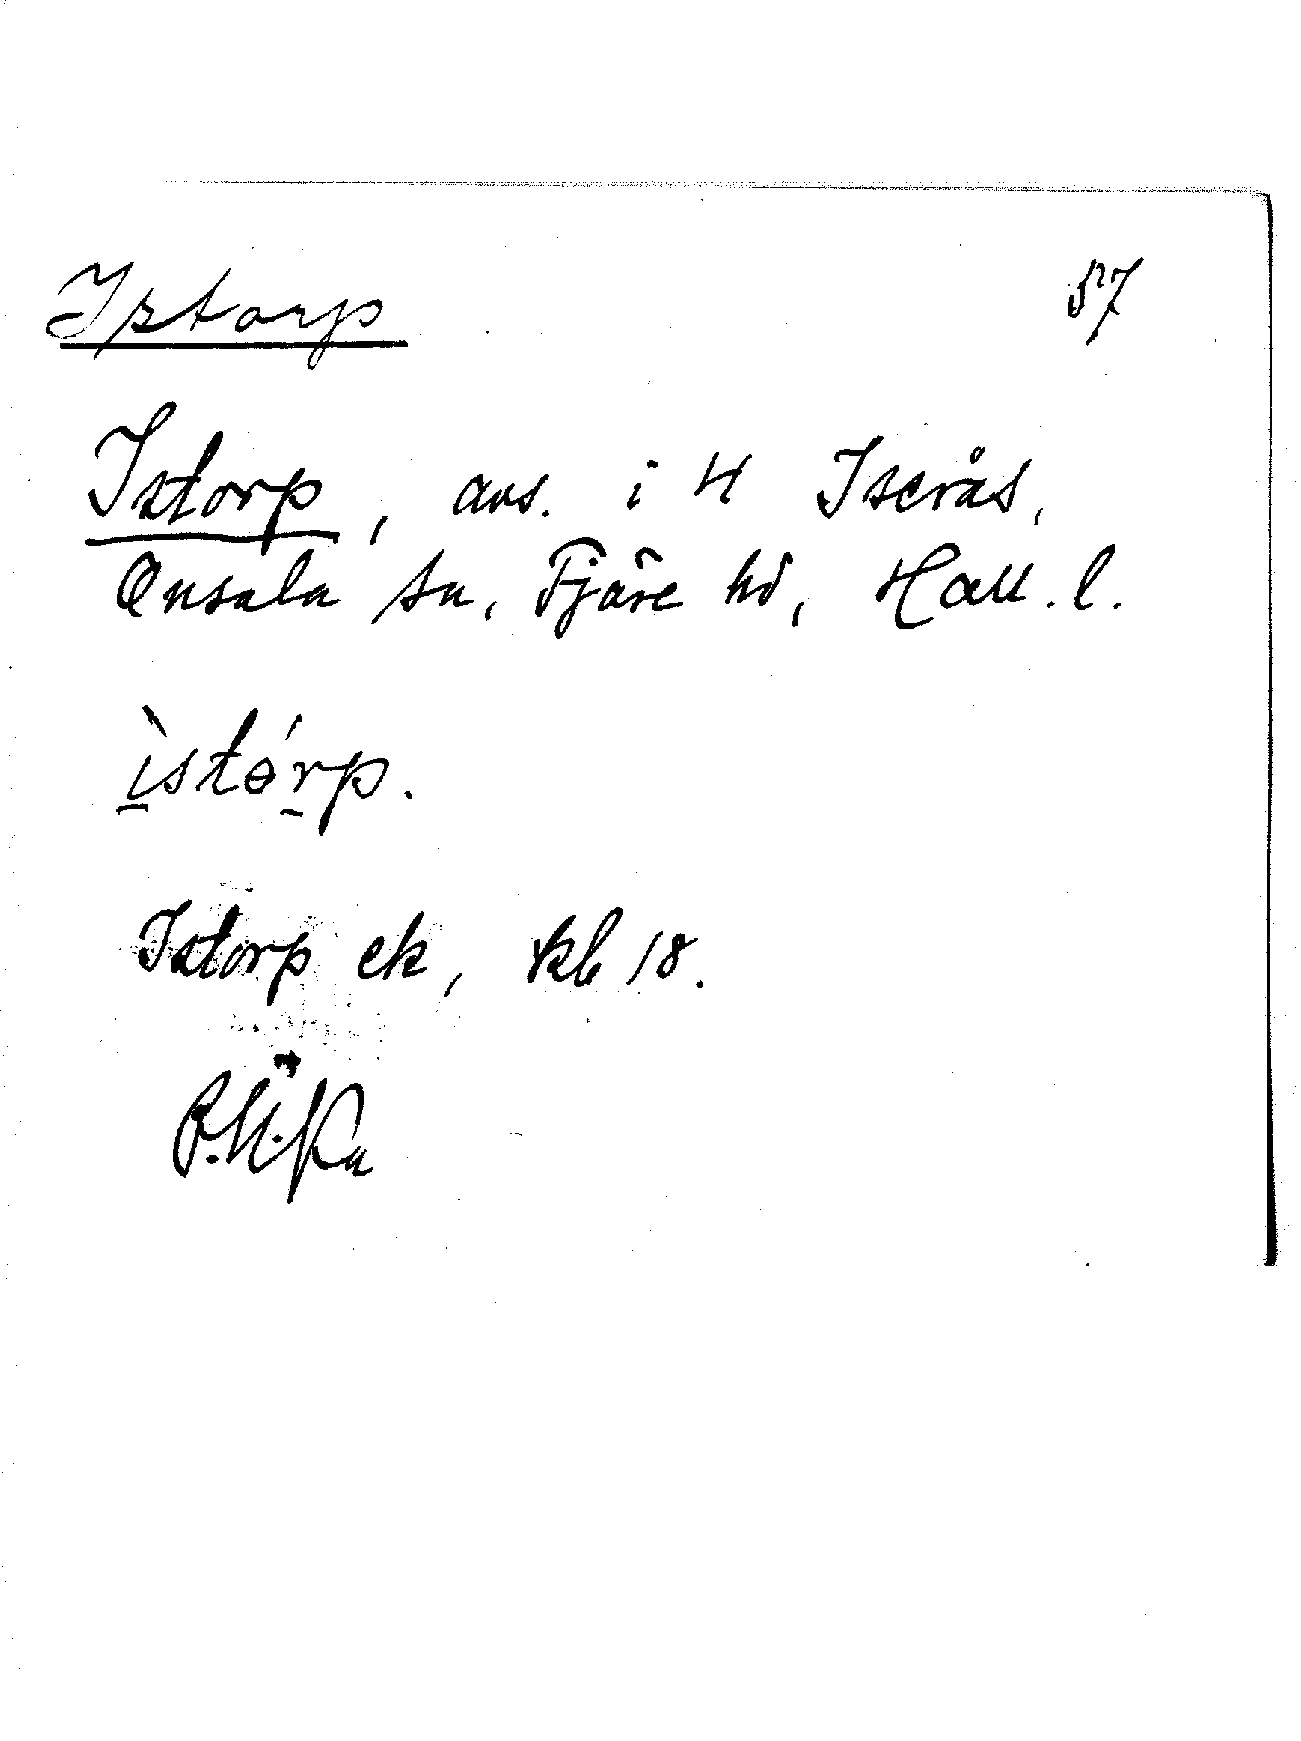 Istorp 57
Istorp, avs. i 4 Iserås,
Onsala sn, Fjäre hd, Hall. l.
ìstórp.
Istorp ek, kb 18.